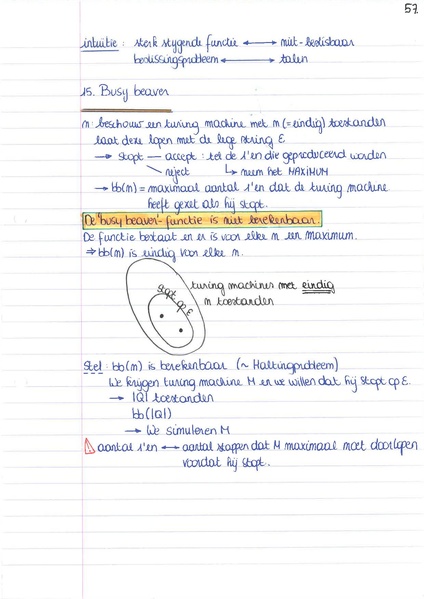 57
intuïtie : sterk stijgende functie ⟷ niet-beslisbaar
beslissingsprobleem ⟷ talen
15. Busy beaver
n: beschouw een turing machine met n (= eindig) toestanden
laat deze lopen met de lege string ε
→ stopt — accept : tel de 1'en die geproduceerd worden
reject ↳ neem het MAXIMUM
→ bb(n) = maximaal aantal 1'en dat de turing machine
heeft gezet als hij stopt.
De "busy beaver"-functie is niet berekenbaar.
De functie bestaat en er is voor elke n een maximum.
⇒ bb(n) is eindig voor elke n.
turing machines met eindig
n toestanden
stopt op ε
Stel : bb(n) is berekenbaar (~ Haltingprobleem)
We krijgen turing machine M en we willen dat hij stopt op ε.
→ |Q| toestanden
bb(|Q|)
→ We simuleren M
⚠ aantal 1'en ⟷ aantal stappen dat M maximaal moet doorlopen
voordat hij stopt.